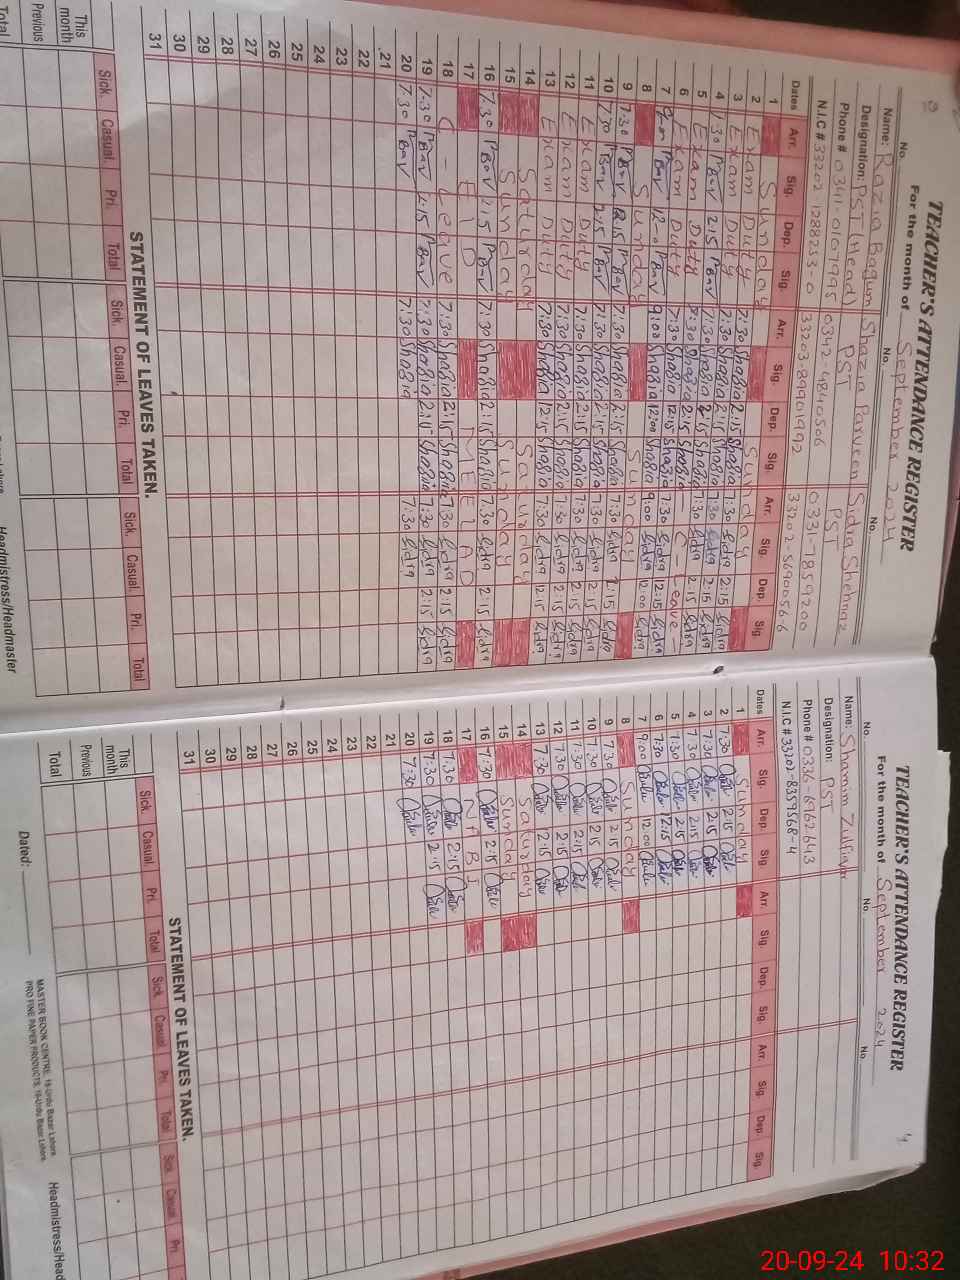 3
TEACHER'S ATTENDANCE REGISTER
For the month of September 2024
No. No. No.
Name: Razia Bagum Shazia Parveen Sidra Shehnaz
Designation: PST (Head) PST PST
Phone # 0341-0167995 0342-4840506 0331-7859200
N.I.C # 33202 1288253-0 33203-89901992 33202-5690056-6
Dates Arr. Sig. Dep. Sig. Arr. Sig. Dep. Sig. Arr. Sig. Dep. Sig.
1 Sunday Sunday
2 Exam Duty 7:30 Shazia 2:15 Shazia 7:30 Sidra 2:15 Sidra
3 Exam Duty 7:30 Shazia 2:15 Shazia 7:30 Sidra 2:15 Sidra
4 7:30 2:15 7:30 Shazia 2:15 Shazia 7:30 Sidra 2:15 Sidra
5 Exam Duty 7:30 Shazia 2:15 Shazia C - Leave -
6 Exam Duty 7:30 Shazia 12:15 Shazia 7:30 Sidra 12:15 Sidra
7 9:00 Shazia 12:00 Shazia 9:00 Sidra 12:00 Sidra
8 Sunday Sunday
9 7:30 2:15 7:30 Shazia 2:15 Shazia 7:30 Sidra 2:15 Sidra
10 7:30 2:15 7:30 Shazia 2:15 Shazia 7:30 Sidra 2:15 Sidra
11 Exam Duty 7:30 Shazia 2:15 Shazia 7:30 Sidra 2:15 Sidra
12 Exam Duty 7:30 Shazia 2:15 Shazia 7:30 Sidra 2:15 Sidra
13 Exam Duty 7:30 Shazia 12:15 Shazia 7:30 Sidra 12:15 Sidra
14 Saturday Saturday
15 Sunday Sunday
16 7:30 2:15 7:30 Shazia 2:15 Shazia 7:30 Sidra 2:15 Sidra
17 EID MEELAD
18 C - Leave 7:30 Shazia 2:15 Shazia 7:30 Sidra 2:15 Sidra
19 7:30 2:15 7:30 Shazia 2:15 Shazia 7:30 Sidra 2:15 Sidra
20 7:30 7:30 Shazia 7:30 Sidra
21
22
23
24
25
26
27
28
29
30
31
STATEMENT OF LEAVES TAKEN.
Sick. Casual. Pri. Total Sick. Casual. Pri. Total Sick. Casual. Pri. Total
This month
Previous
Total
Headmistress/Headmaster
4
TEACHER'S ATTENDANCE REGISTER
For the month of September 2024
No. No. No.
Name: Shamim Zulfiqar
Designation: PST
Phone # 0336-6762643
N.I.C # 33202-8359568-4
Dates Arr. Sig. Dep. Sig. Arr. Sig. Dep. Sig. Arr. Sig. Dep. Sig.
1 Sunday
2 7:30 2:15
3 7:30 2:15
4 7:30 2:15
5 7:30 2:15
6 7:30 12:15
7 9:00 12:00
8 Sunday
9 7:30 2:15
10 7:30 2:15
11 7:30 2:15
12 7:30 2:15
13 7:30 2:15
14 Saturday
15 Sunday
16 7:30 2:15
17 NABI
18 7:30 2:15
19 7:30 2:15
20 7:30
21
22
23
24
25
26
27
28
29
30
31
STATEMENT OF LEAVES TAKEN.
Sick. Casual. Pri. Total Sick. Casual. Pri. Total Sick. Casual. Pri.
This month
Previous
Total
MASTER BOOK CENTRE, 16-Urdu Bazar Lahore.
PRO FINE PAPER PRODUCTS, 16-Urdu Bazar Lahore.
Dated: Headmistress/Head
20-09-24 10:32